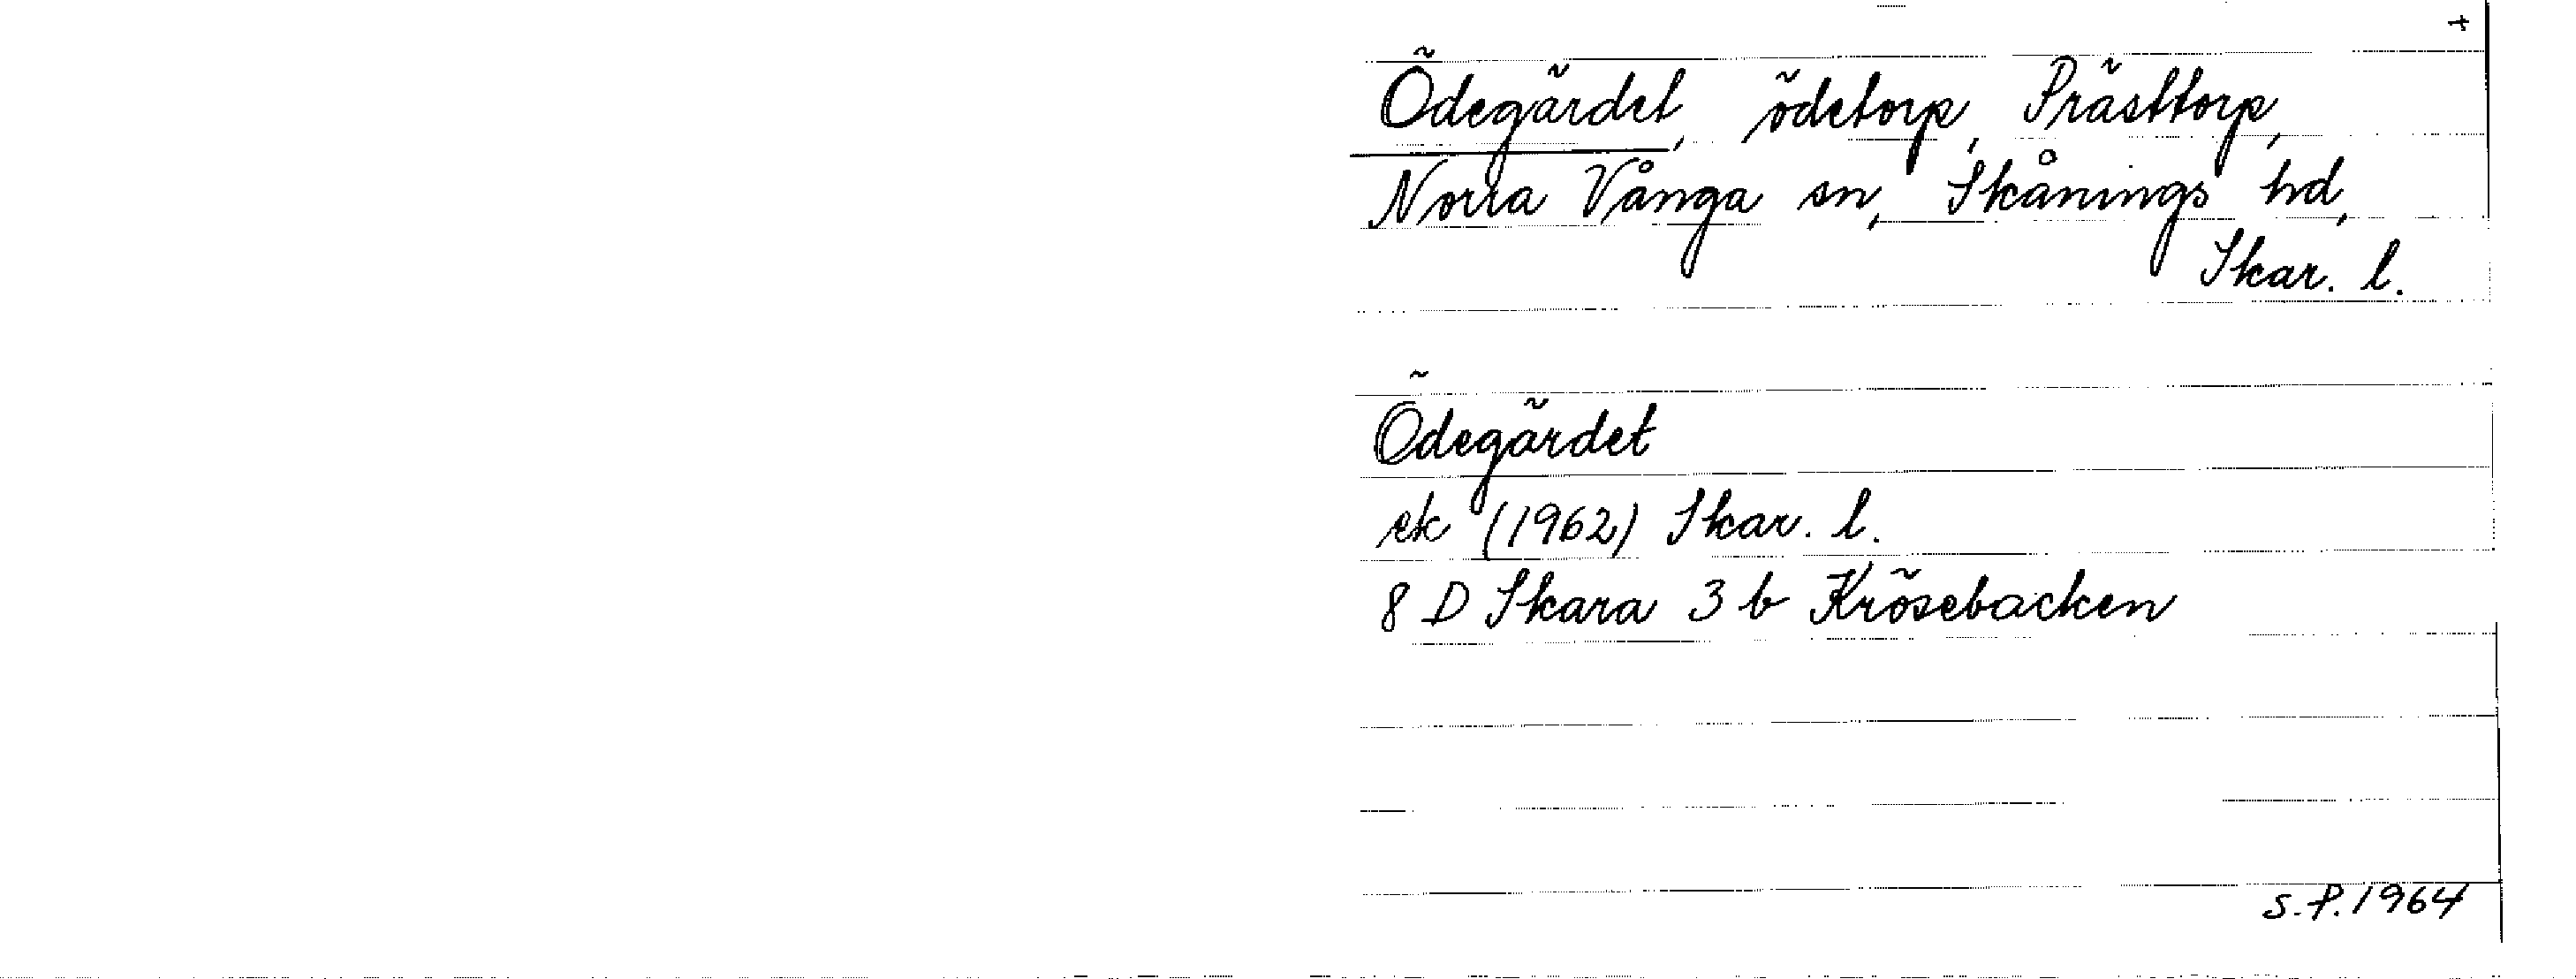 Ödegärdet, ödetorp, Prästtorp,
Norra Vånga sn, Skånings hd,
Skar. l.
Ödegärdet
ek (1962) Skar. l.
8 D Skara 3 b Krösebacken
S.P. 1964